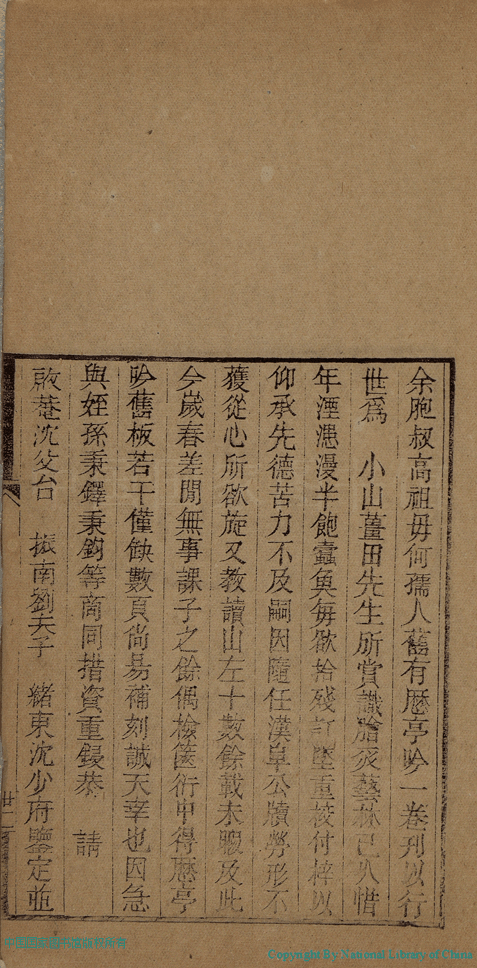 余胞叔高祖母何孺人舊有歷亭吟一卷刊以行
世爲　小山薑田先生所賞識膾炙藝林已久惜
年湮漶漫半飽蠹魚每欲拾殘訂墜重校付梓以
仰承先德苦力不及嗣因隨任漢阜公牘勞形不
獲從心所欲旋又教讀山左十數餘載未暇及此
今歲春差閒無事課子之餘偶檢篋衍中得歷亭
吟舊板若干僅缺數頁尚易補刻誠天幸也因急
與姪孫秉鐸秉鈞等商同措資重鋟恭　請
啟菴沈父台　振南劉夫子　緒東沈少府鑒定並
廿二
Copyright By National Library of China